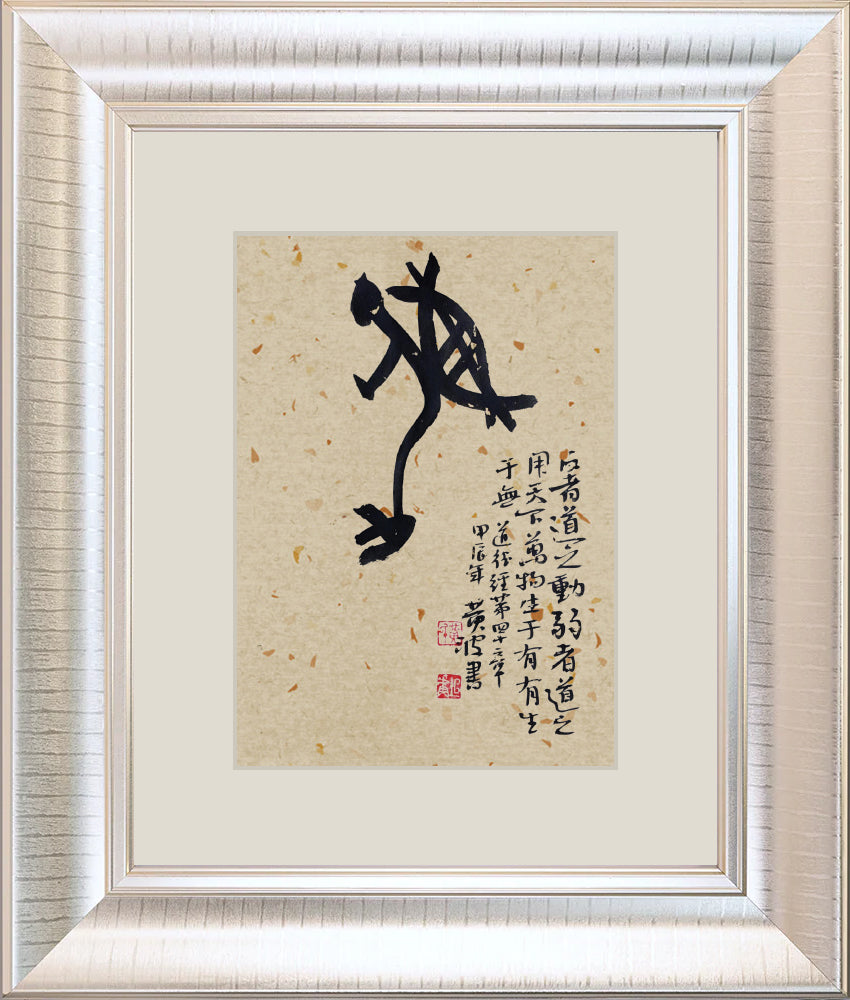 反者道之動弱者道之
用天下萬物生于有有生
于無 道德經第四十章
甲辰年 黃波書